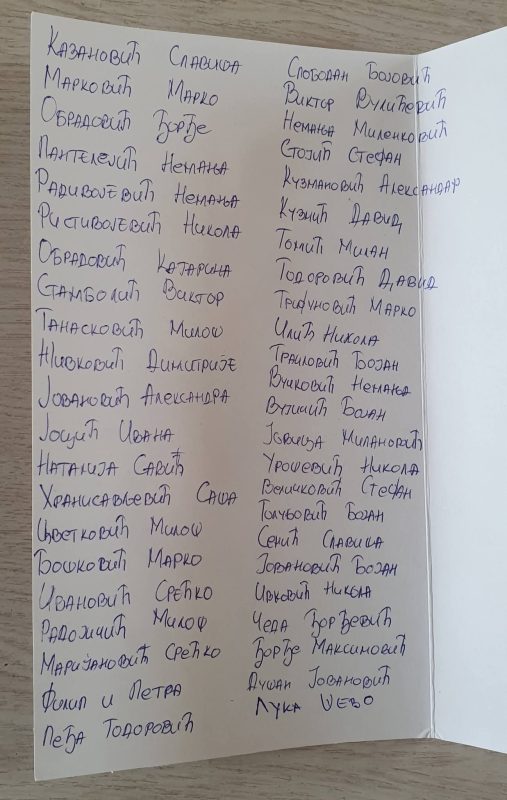 Казановић Славиша
Марковић Марко
Обрадовић Ђорђе
Пантелејић Немања
Радивојевић Немања
Ристивојевић Никола
Обрадовић Катарина
Стамболић Виктор
Танасковић Милош
Живковић Димитрије
Јовановић Александра
Јоцић Ивана
Наталија Савић
Хранисављевић Саша
Цветковић Милош
Бошковић Марко
Ивановић Срећко
Радојичић Милош
Маријановић Срећко
Филип и Петра
Пеђа Тодоровић
Слободан Бојовић
Виктор Вулићевић
Немања Миленковић
Стојић Стефан
Кузмановић Александар
Кузмић Давид
Томић Милан
Тодоровић Давид
Трифуновић Марко
Илић Никола
Траиловић Бојан
Вучковић Немања
Бојан
Јовица Миловановић
Урошевић Никола
Величковић Стефан
Голубовић Бојан
Сенић Славиша
Јовановић Бојан
Ивковић Никола
Чеда Ђорђевић
Ђорђе Максимовић
Душан Јовановић
Лука